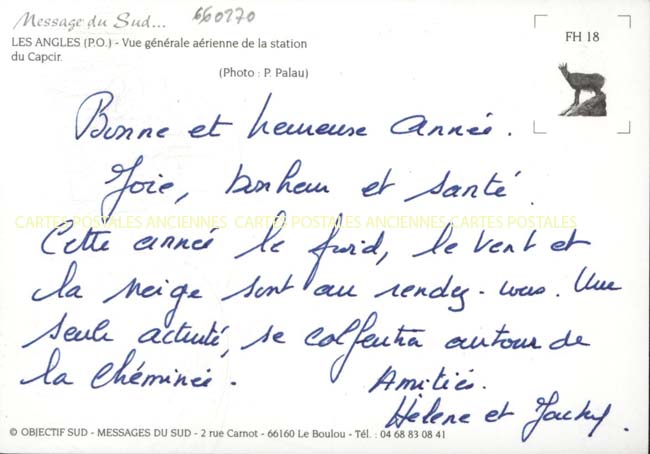 Message du Sud...
660270
LES ANGLES (P.O.) - Vue générale aérienne de la station
du Capcir.
(Photo : P. Palau)
FH 18
Bonne et heureuse année.
Joie, bonheur et santé.
CARTES POSTALES ANCIENNES CARTES POSTALES ANCIENNES CARTES POSTALES
Cette année le froid, le vent et
la neige sont au rendez-vous. Une
seule activité, se calfeutrer autour de
la cheminée.
Amitiés.
Hélène et
© OBJECTIF SUD - MESSAGES DU SUD - 2 rue Carnot - 66160 Le Boulou - Tél. : 04 68 83 08 41